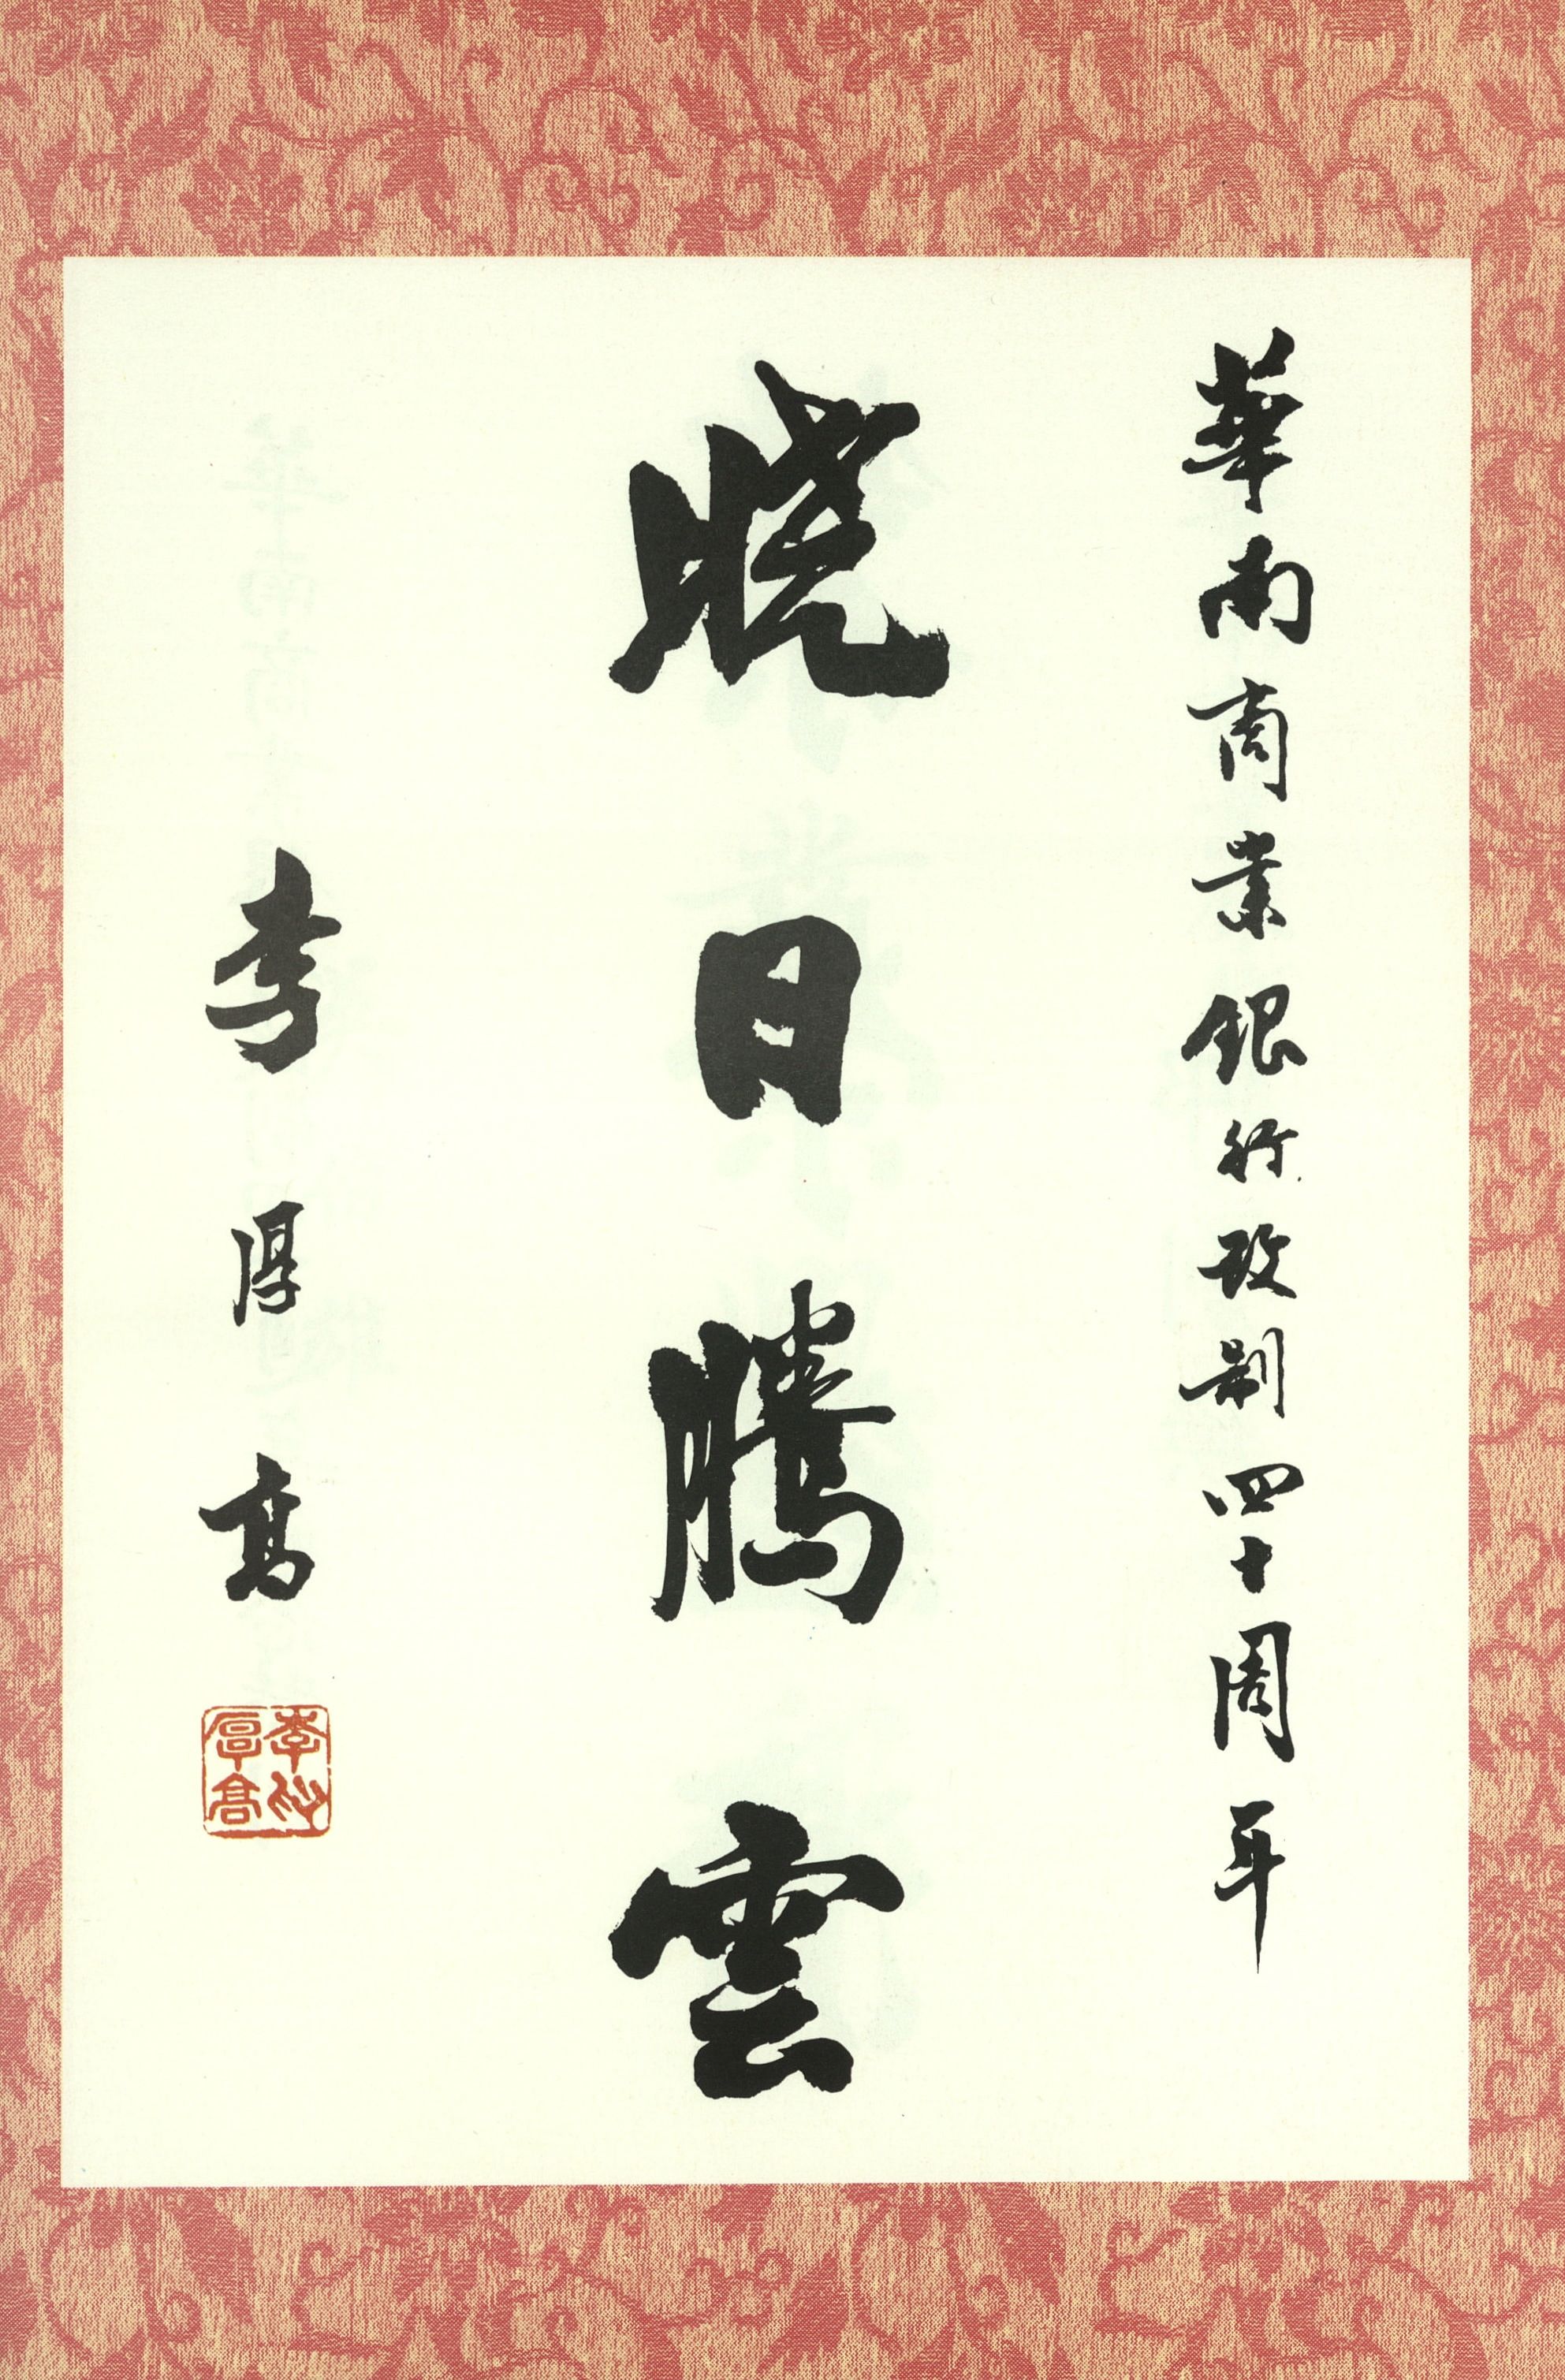 華南商業銀行改制四十周年
曉日騰雲
李厚高
李厚高印